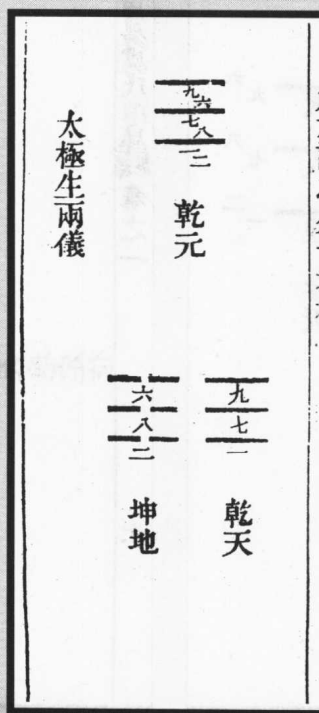 九六
七八
一二
乾元
九
七
一
乾天
六
八
二
坤地
太極生兩儀